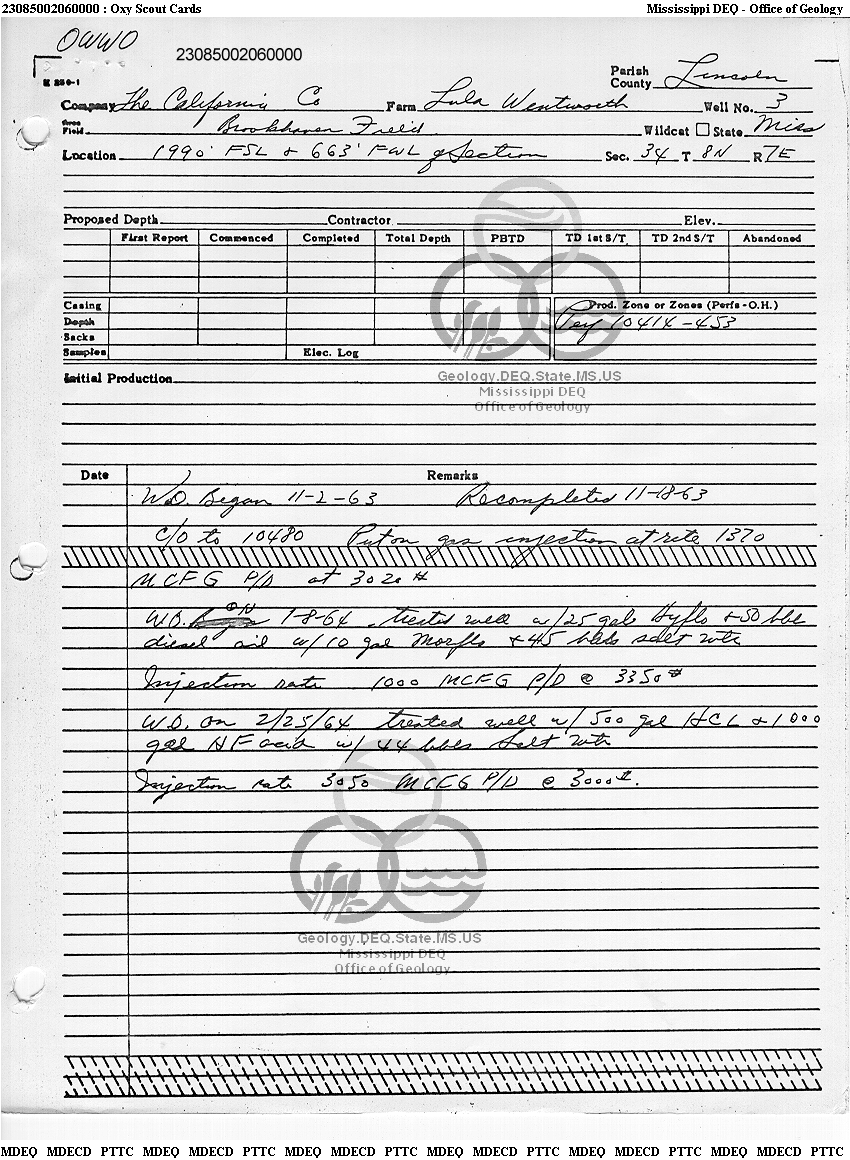 23085002060000 : Oxy Scout Cards Mississippi DEQ - Office of Geology
OWWO
23085002060000
Parish
County Lincoln
Company The California Co Farm Lula Wentworth Well No. 3
Field Brookhaven Field Wildcat State Miss
Location 1990' FSL & 663' FWL of Section Sec. 34 T 8N R 7E
Proposed Depth Contractor Elev.
First Report Commenced Completed Total Depth PBTD TD 1st S/T TD 2nd S/T Abandoned
Casing Prod. Zone or Zones (Perfs - O.H.)
Depth Perf 10414-453
Sacks
Samples Elec. Log
Geology.DEQ.State.MS.US
Initial Production
Mississippi DEQ
Office of Geology
Date Remarks
W.O. Began 11-2-63 Recompleted 11-18-63
C/O to 10480 Put on gas injection at rate 1370
MCFG P/D at 3020#
W.O. ON 1-8-64 treated well w/25 gals Hyflo + 50 bbl
diesel oil w/10 gal Morflo + 45 bbls salt wtr
Injection rate 1000 MCFG P/D @ 3350#
W.O. on 2/25/64 treated well w/500 gal HCL & 1000
gal HF acid w/44 bbls Salt Wtr
Injection rate 3050 MCFG P/D @ 3000#.
Geology.DEQ.State.MS.US
Mississippi DEQ
Office of Geology
MDEQ MDECD PTTC MDEQ MDECD PTTC MDEQ MDECD PTTC MDEQ MDECD PTTC MDEQ MDECD PTTC MDEQ MDECD PTTC